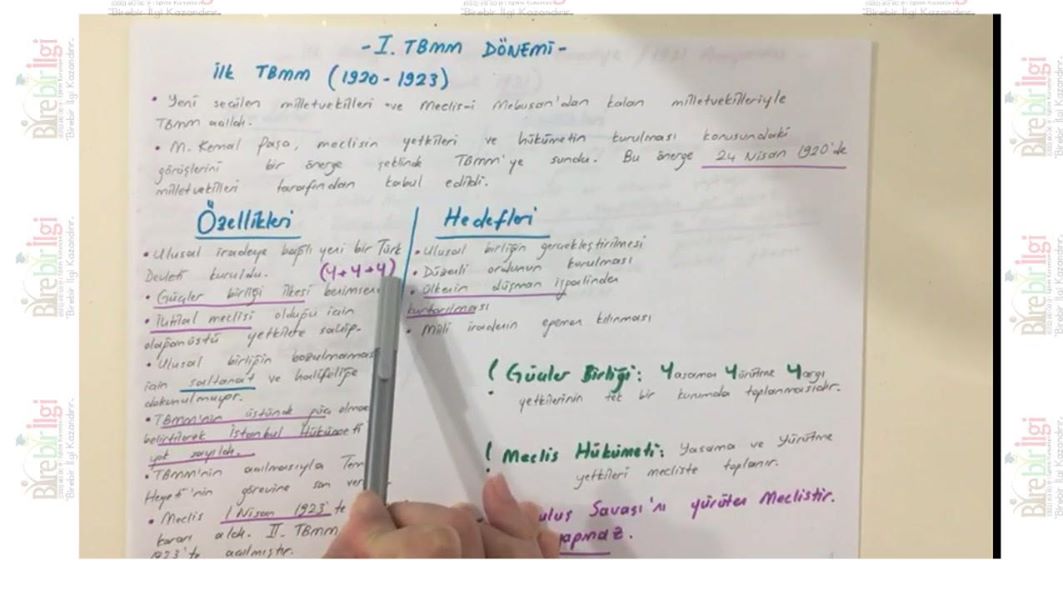 - I. TBMM DÖNEMİ -
İlk TBMM (1920 - 1923)
• Yeni seçilen milletvekilleri ve Meclis-i Mebusan'dan kalan milletvekilleriyle
TBMM açıldı.
• M. Kemal Paşa, meclisin yetkileri ve hükümetin kurulması konusundaki
görüşlerini bir önerge şeklinde TBMM'ye sundu. Bu önerge 24 Nisan 1920'de
milletvekilleri tarafından kabul edildi.
Özellikleri
• Ulusal iradeye bağlı yeni bir Türk
Devleti kuruldu. (Y+Y+Y)
• Güçler birliği ilkesi
• İhtilal meclisi olduğu için
olağanüstü yetkilere sahip.
• Ulusal birliğin
için saltanat ve halifeliğe
dokunulmuyor.
• TBMM'nin üstünde güç
belirtilerek İstanbul Hükümeti
yok sayıldı.
• TBMM'nin açılmasıyla
Heyeti'nin görevine son
• Meclis 1 Nisan 1923'te
kararı aldı. II. TBMM
1923'te açılmıştır.
Hedefleri
• Ulusal birliğin gerçekleştirilmesi
• Düzenli ordunun kurulması
• Ülkenin düşman işgalinden
kurtarılması
• Milli iradenin egemen kılınması
( Güçler Birliği: Yasama Yürütme Yargı
yetkilerinin tek bir kurumda toplanmasıdır.
( Meclis Hükümeti: Yasama ve Yürütme
yetkileri mecliste toplanır.
Savaşı'nı yürüten Meclistir.
Birebir İlgi
"Birebir İlgi Kazandırır."